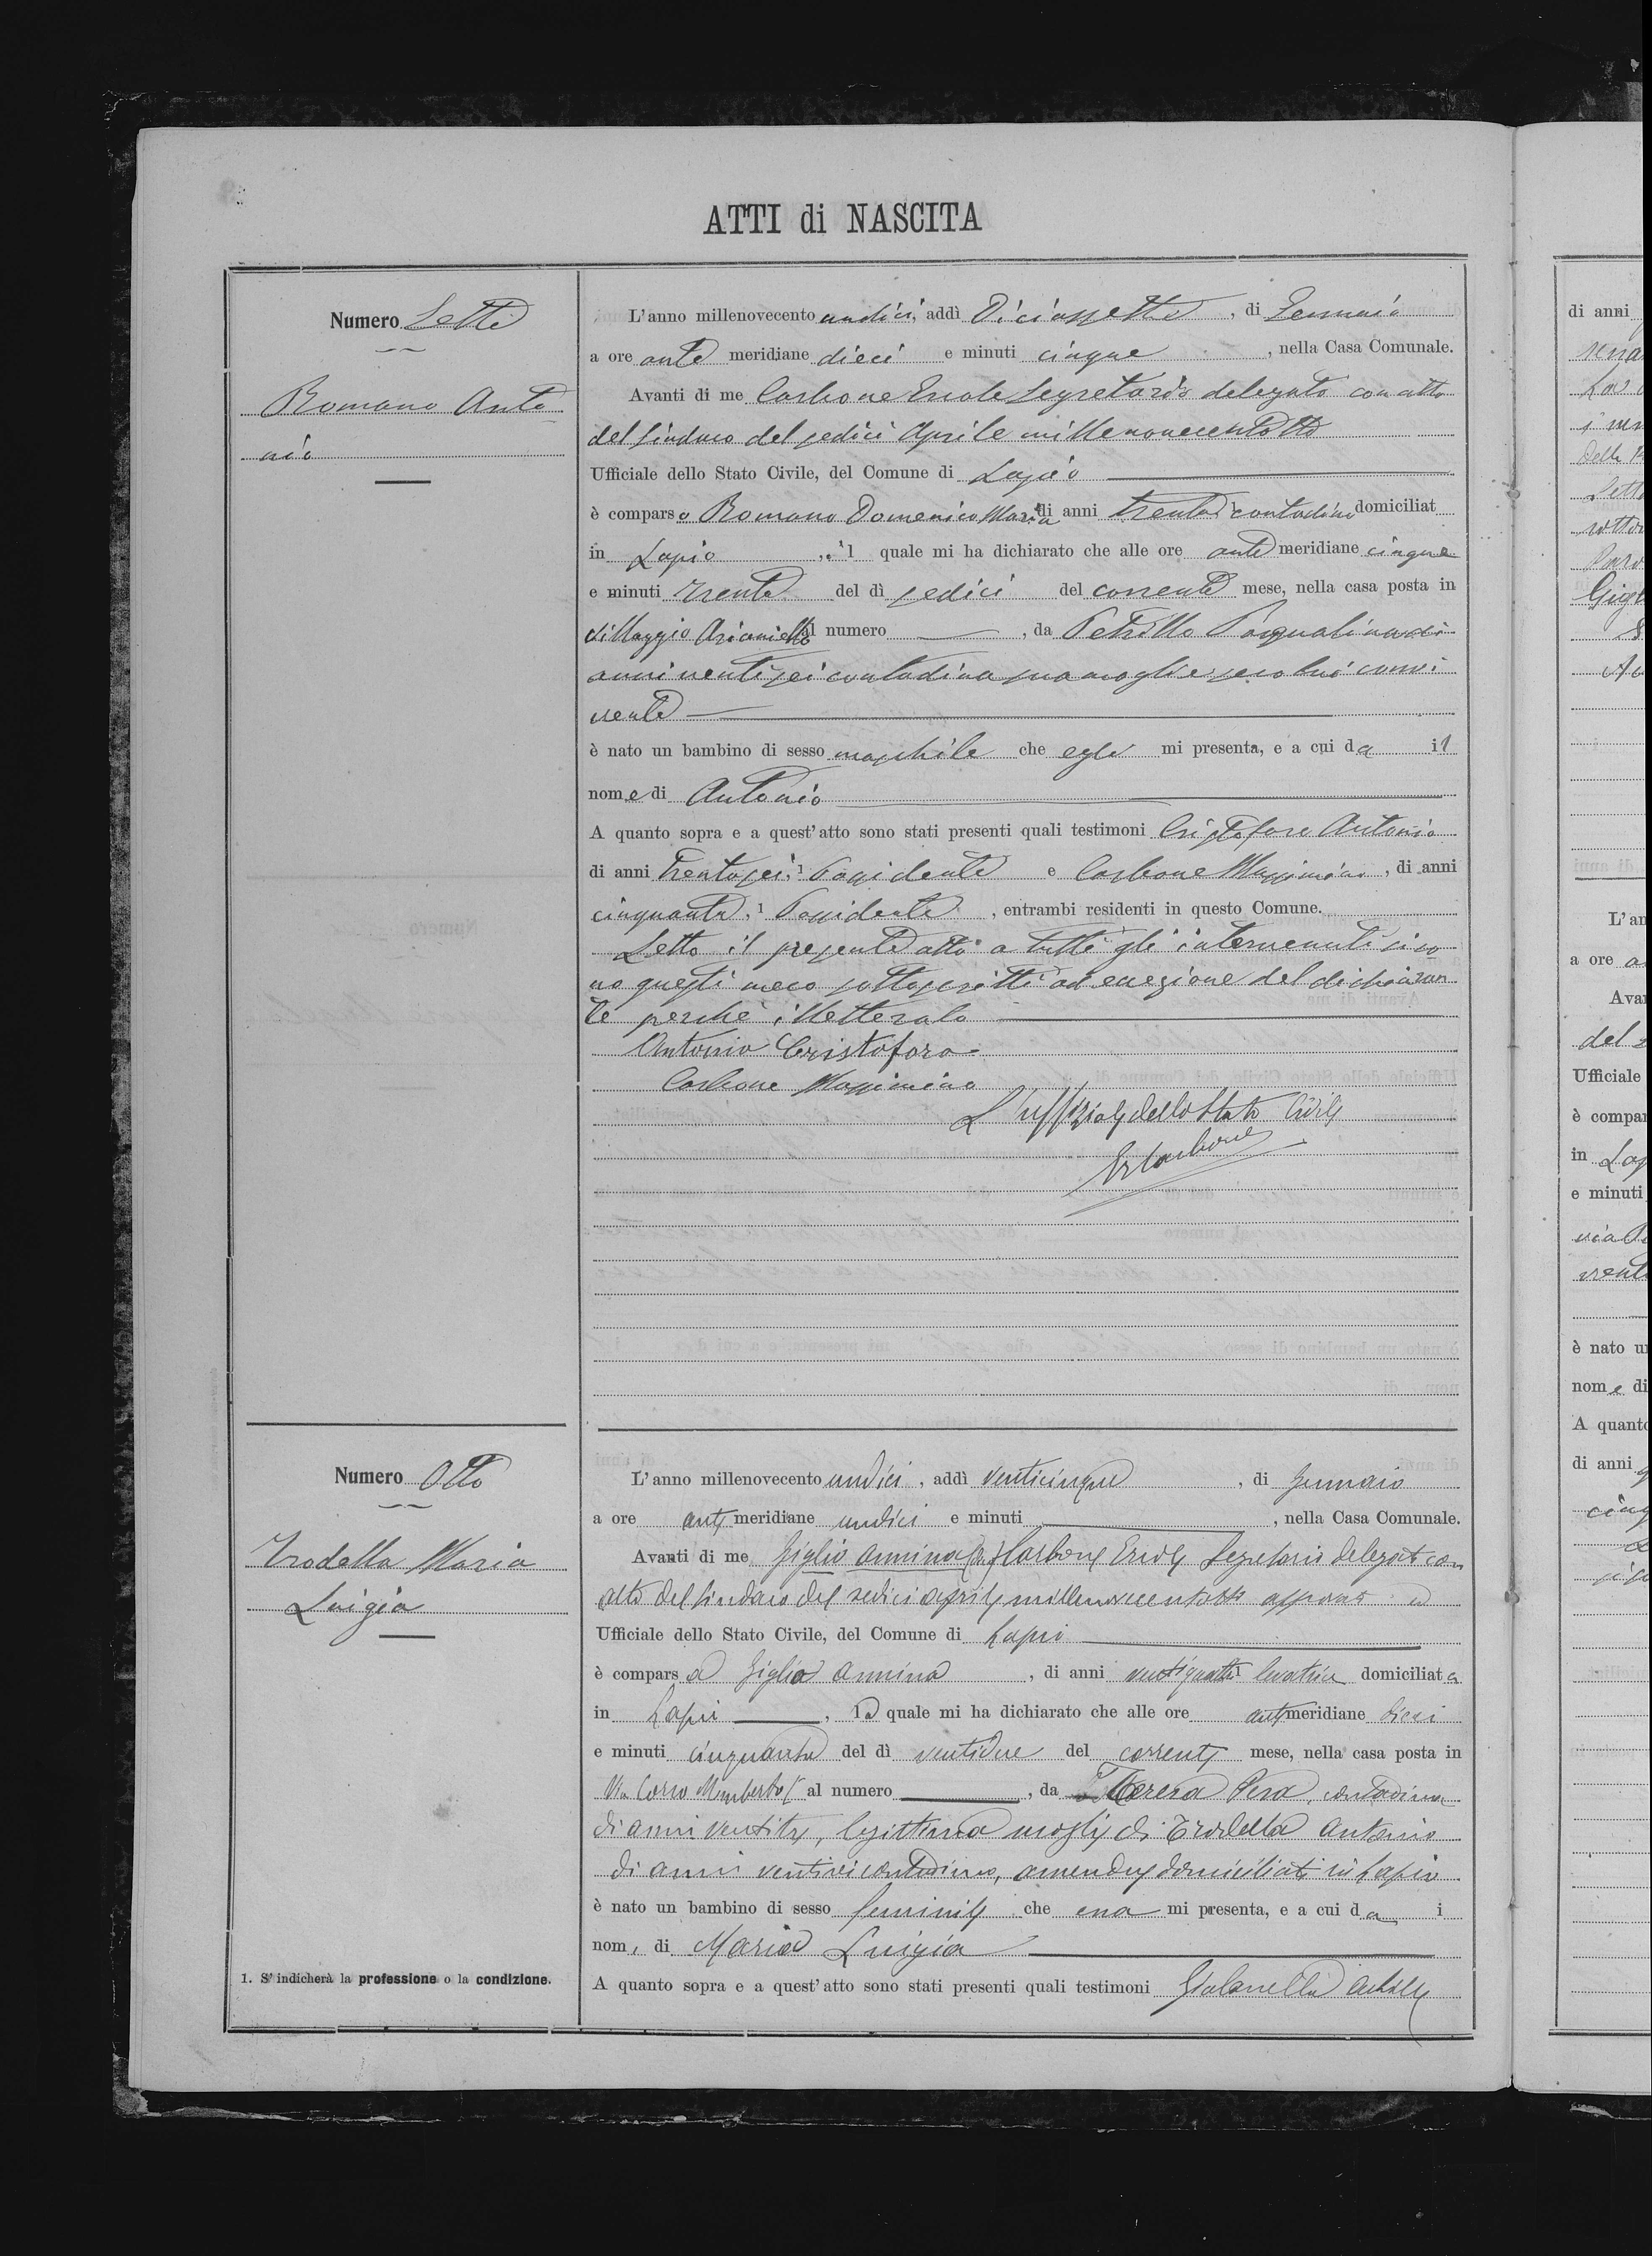 ATTI di NASCITA
Numero Sette
Romano Anto
nio
L'anno millenovecento undici, addì Diciassette, di Gennaio
a ore ante meridiane dieci e minuti cinque, nella Casa Comunale.
Avanti di me Carbone Ercole Segretario delegato con atto
del Sindaco del sedici Aprile millenovecentotto
Ufficiale dello Stato Civile, del Comune di Lapio
è comparso Romano Domenico Maria di anni trenta 1 contadino domiciliat
in Lapio, il quale mi ha dichiarato che alle ore ante meridiane cinque
e minuti trenta del dì sedici del corrente mese, nella casa posta in
Villaggio Arianiello al numero —, da Petrillo Pasqualina di
anni ventisei contadina sua moglie seco lui convi
vente
è nato un bambino di sesso maschile che egli mi presenta, e a cui da il
nome di Antonio
A quanto sopra e a quest'atto sono stati presenti quali testimoni Cristofaro Antonio
di anni trentasei, 1 Possidente e Carbone Massimino, di anni
cinquanta, 1 Possidente, entrambi residenti in questo Comune.
Letto il presente atto a tutti gli intervenuti si so
no questi meco sottoscritti ad eccezione del dichiaran
te perchè illetterato
Antonio Cristofaro
Carbone Massimino
L'uffiziale dello Stato Civile
ErCarbone
Numero Otto
Trodella Maria
Luigia
L'anno millenovecento undici, addì venticinque, di Gennaio
a ore ante meridiane undici e minuti —, nella Casa Comunale.
Avanti di me Giglio Annina Carbone Ercole Segretario delegato con
atto del Sindaco del sedici aprile millenovecentotto approvato
Ufficiale dello Stato Civile, del Comune di Lapio
è comparsa Giglio Annina, di anni ventiquattro 1 levatrice domiciliata
in Lapio —, la quale mi ha dichiarato che alle ore ante meridiane dieci
e minuti cinquanta del dì ventidue del corrente mese, nella casa posta in
Via Corso Umberto I al numero —, da Teresa Vera, contadina
di anni ventitre, legittima moglie di Trodella Antonio
di anni ventisei contadino, amendue domiciliati in Lapio
è nato un bambino di sesso femminile che essa mi presenta, e a cui da i
nomi di Maria Luigia
1. S'indicherà la professione o la condizione.
A quanto sopra e a quest'atto sono stati presenti quali testimoni Achille